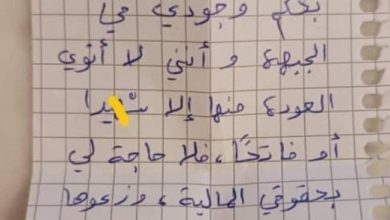 بحكم وجودي في
الجبهة و أنني لا أنوي
العودة منها إلا شهيدا
أو فاتحًا، فلا حاجة لي
بحقوقي المالية، وزعوها